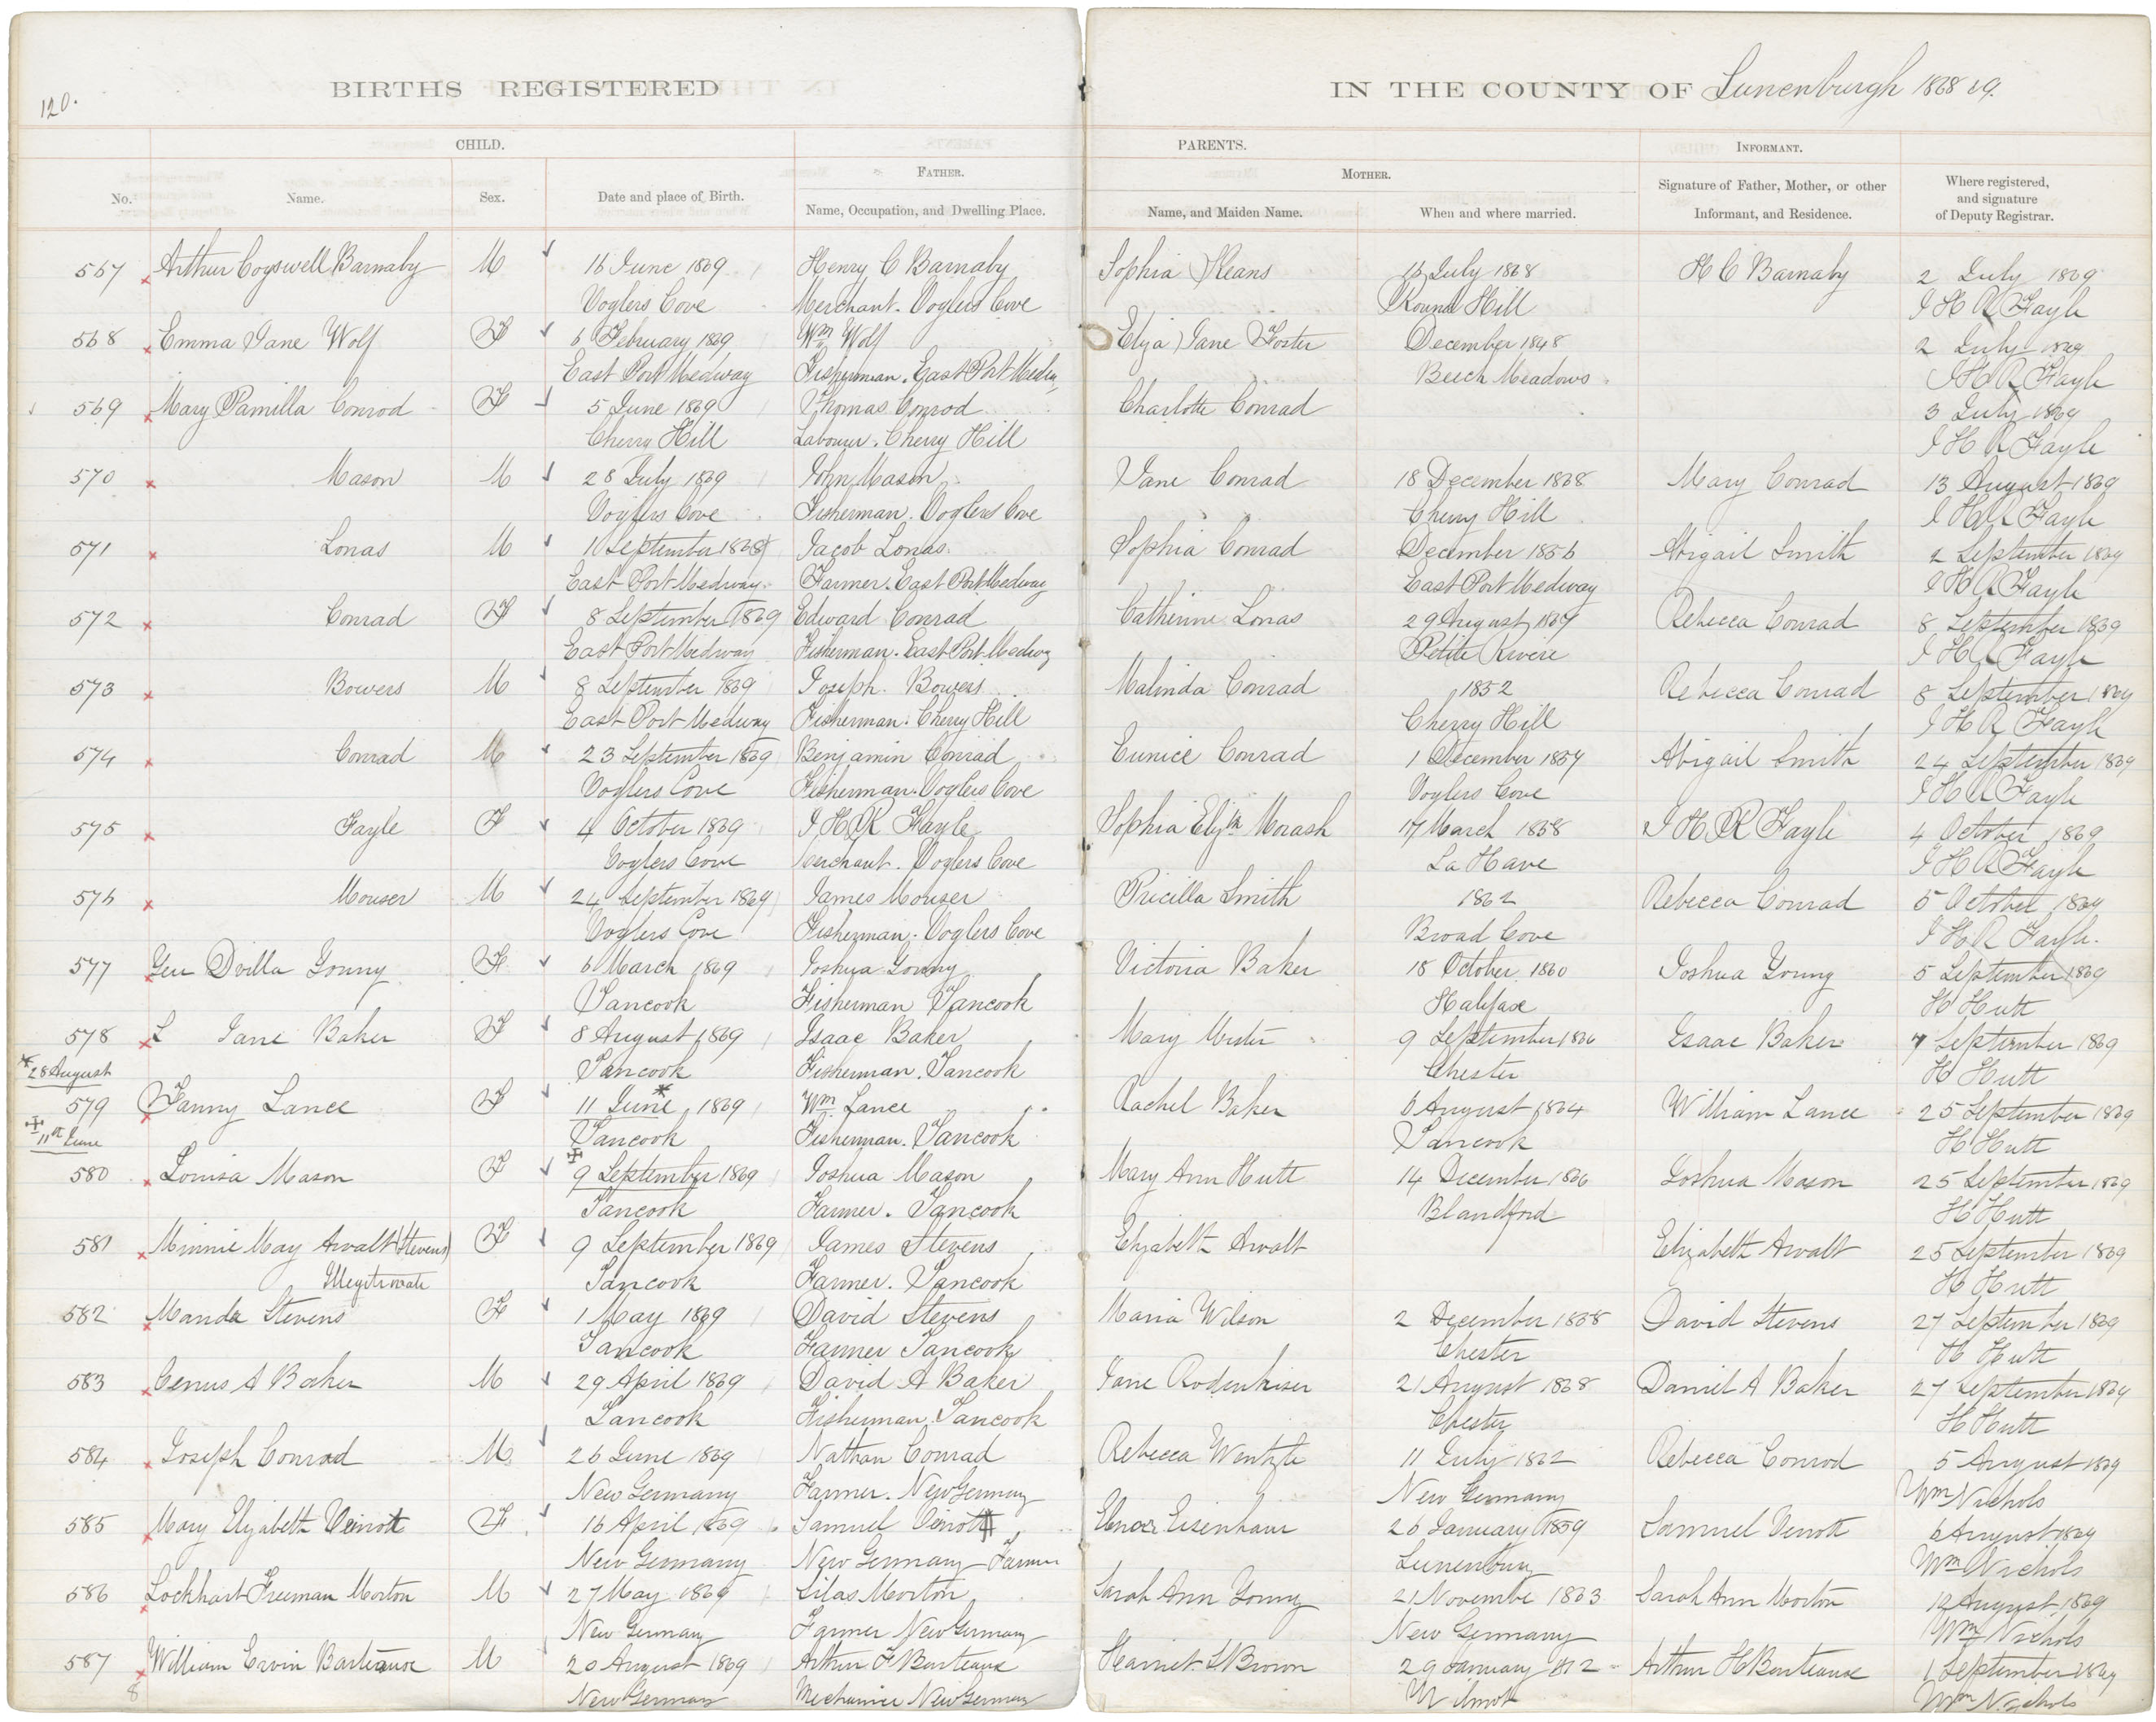 120.
BIRTHS REGISTERED
IN THE COUNTY OF Lunenburgh 1868 & 9.
CHILD.
PARENTS.
INFORMANT.
FATHER.
MOTHER.
No.
Name.
Sex.
Date and place of Birth.
Name, Occupation, and Dwelling Place.
Name, and Maiden Name.
When and where married.
Signature of Father, Mother, or other Informant, and Residence.
Where registered, and signature of Deputy Registrar.
567 Arthur Cogswell Barnaby M 16 June 1869 Henry C Barnaby Sophia Skeans 16 July 1868 H C Barnaby 2 July 1869
Voglers Cove Merchant. Voglers Cove Round Hill I H R Fayle
568 Emma Jane Wolf F 6 February 1869 Wm Wolf Eliza Jane Foster December 1848 2 July 1869
East Port Medway Fisherman. East Port Medwy Beech Meadows I H R Fayle
569 Mary Pamilla Conrod F 5 June 1869 Thomas Conrod Charlotte Conrad 3 July 1869
Cherry Hill Labourer. Cherry Hill I H R Fayle
570 Mason M 28 July 1869 John Mason Jane Conrad 18 December 1868 Mary Conrad 13 August 1869
Voglers Cove Fisherman. Voglers Cove Cherry Hill I H R Fayle
571 Lonas M 1 September 1869 Jacob Lonas Sophia Conrad December 1856 Abigail Smith 2 September 1869
East Port Medway. Farmer. East Port Medway East Port Medway I H R Fayle
572 Conrad F 8 September 1869 Edward Conrad Catherine Lonas 29 August 1869 Rebecca Conrad 8 September 1869
East Port Medway Fisherman. East Port Medway Petite Riviere I H R Fayle
573 Bowers M 8 September 1869 Joseph Bowers Malinda Conrad 1852 Rebecca Conrad 8 September 1869
East Port Medway Fisherman. Cherry Hill Cherry Hill I H R Fayle
574 Conrad M 23 September 1869 Benjamin Conrad Eunice Conrad 1 December 1859 Abigail Smith 24 September 1869
Voglers Cove Fisherman. Voglers Cove Voglers Cove I H R Fayle
575 Fayle F 4 October 1869 I H R Fayle Sophia Elizth Morash 17 March 1858 I H R Fayle 4 October 1869
Voglers Cove Merchant. Voglers Cove La Have I H R Fayle
576 Mouser M 24 September 1869 James Mouser Pricilla Smith 1862 Rebecca Conrad 5 October 1869
Voglers Cove Fisherman. Voglers Cove Broad Cove I H R Fayle.
577 Dvilla Young F 6 March 1869 Joshua Young Victoria Baker 18 October 1860 Joshua Young 5 September 1869
Tancook Fisherman Tancook Halifax H Hutt
578 L Jane Baker F 8 August 1869 Isaac Baker Mary 9 September 1866 Isaac Baker 7 September 1869
Tancook Fisherman. Tancook Chester H Hutt
* 28 August
579 Fanny Lance F 11 June * 1869 Wm Lance Rachel Baker 6 August 1864 William Lance 25 September 1869
Tancook Fisherman. Tancook Tancook H Hutt
11th June
580 Louisa Mason F 9 September 1869 Joshua Mason Mary Ann Hutt 14 December 1866 Joshua Mason 25 September 1869
Tancook Farmer. Tancook Blandford H Hutt
581 Minnie May Awalt (Stevens) F 9 September 1869 James Stevens Elizabeth Awalt Elizabeth Awalt 25 September 1869
Illegitimate Tancook Farmer. Tancook H Hutt
582 Manda Stevens F 1 May 1869 David Stevens Maria Wilson 2 December 1858 David Stevens 27 September 1869
Tancook Farmer Tancook Chester H Hutt
583 Cenus A Baker M 29 April 1869 David A Baker Jane Rodenhiser 21 August 1868 Daniel A Baker 27 September 1869
Tancook Fisherman. Tancook Chester H Hutt
584 Joseph Conrad M 26 June 1869 Nathan Conrad Rebecca Wentzle 11 July 1862 Rebecca Conrod 5 August 1869
New Germany Farmer. New Germany New Germany Wm Nichols
585 Mary Elizabeth Veinott F 16 April 1869 Samuel Veinott Elenor Eisenhaur 26 January 1859 Samuel Venott 6 August 1869
New Germany New Germany Farmer Lunenburg Wm Nichols
586 Lockhart Freeman Morton M 27 May 1869 Silas Morton Sarah Ann Young 21 November 1863 Sarah Ann Morton 19 August 1869
New Germany Farmer New Germany New Germany Wm Nichols
587 William Ervin Barteaux M 20 August 1869 Arthur F Barteaux Harriet S Brown 29 January Arthur H Barteaux 1 September 1869
8 New Germany Mechanic New Germany Wilmot Wm Nichols